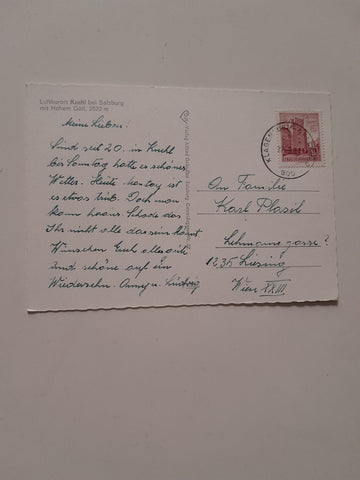 Luftkurort Kuchl bei Salzburg
mit Hohem Göll, 2522 m
Meine Lieben!
Sind seit 20. in Kuchl
bis Sonntag hatte es schönes
Wetter. Heute Montag ist
es etwas trüb. Doch man
kann heraus. Schade das
Ihr nicht alle da sein könnt
Wünschen Euch alles Gute
und schöne auf ein
Wiedersehn. Anny u. Ludwig
KLAGENFURT
An Familie
Karl Plasil
Lehmanngasse 7
1235 Liesing
Wien XXIII